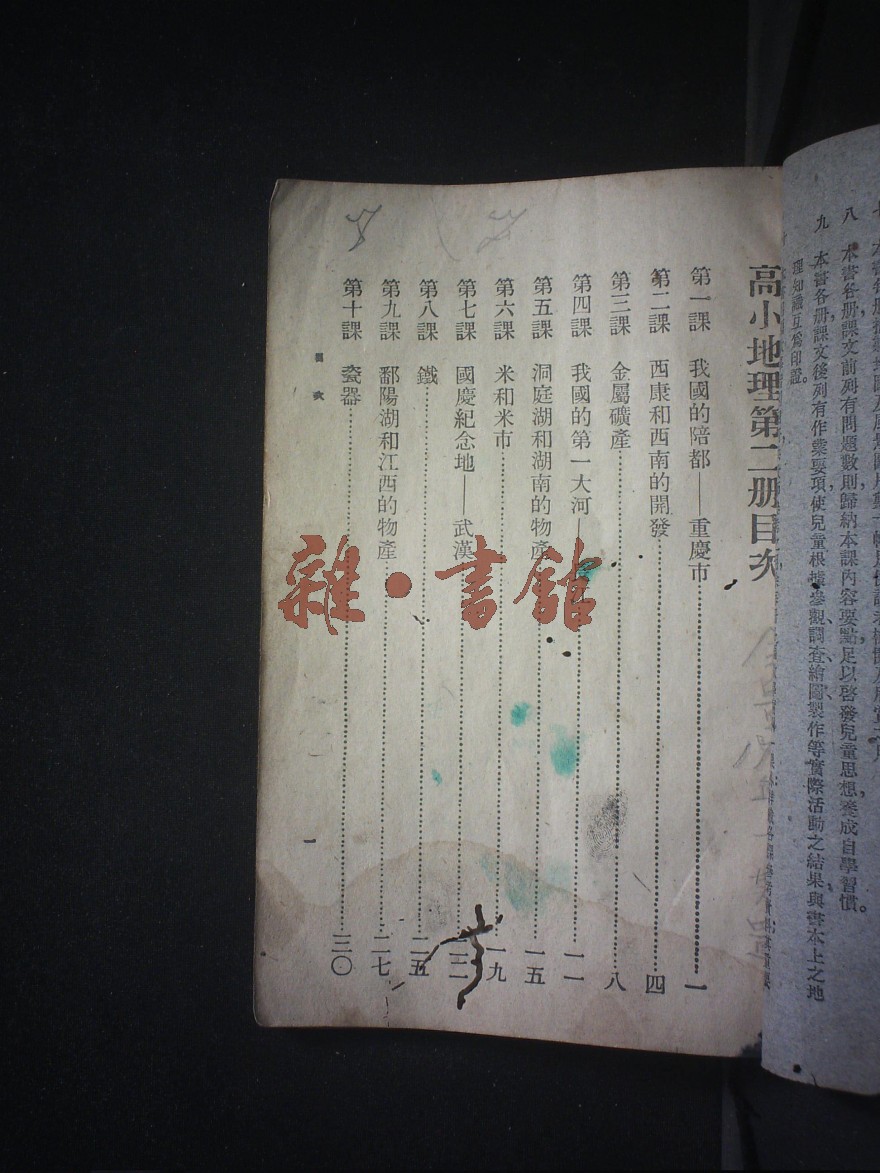 八 本書各册課文前列有問題數則歸納本課內容要點足以啓發兒童思想養成自學習慣。
九 本書各册課文後列有作業要項使兒童根據參觀調查繪圖製作等實際活動之結果與書本上之地
理知識互爲印證。
高小地理第二册目次
第一課 我國的陪都——重慶市……一
第二課 西康和西南的開發……四
第三課 金屬礦產……八
第四課 我國的第一大河——……一一
第五課 洞庭湖和湖南的物產……一五
第六課 米和米市……一九
第七課 國慶紀念地——武漢……二二
第八課 鐵……二五
第九課 鄱陽湖和江西的物產……二七
第十課 瓷器……三〇
目次
一
雜·書館